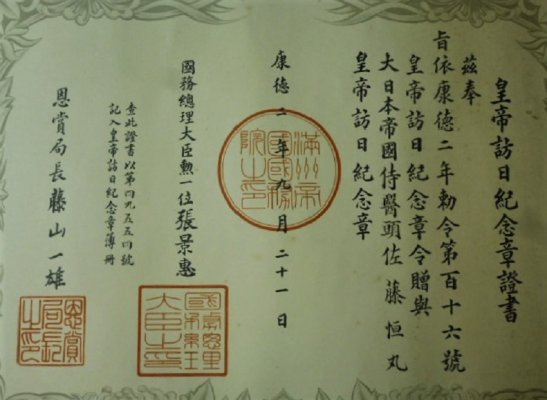 皇帝訪日紀念章證書
茲奉
旨依康德二年勅令第百十六號
皇帝訪日紀念章令贈與
大日本帝國侍醫頭佐藤恒丸
皇帝訪日紀念章
康德二年九月二十一日
滿洲帝
國國務
院之印
國務總理大臣勲一位張景惠
國務總理
大臣之印
查此證書以第四九五五四號
記入皇帝訪日紀念章簿冊
恩賞局長藤山一雄
恩賞
局長
之印